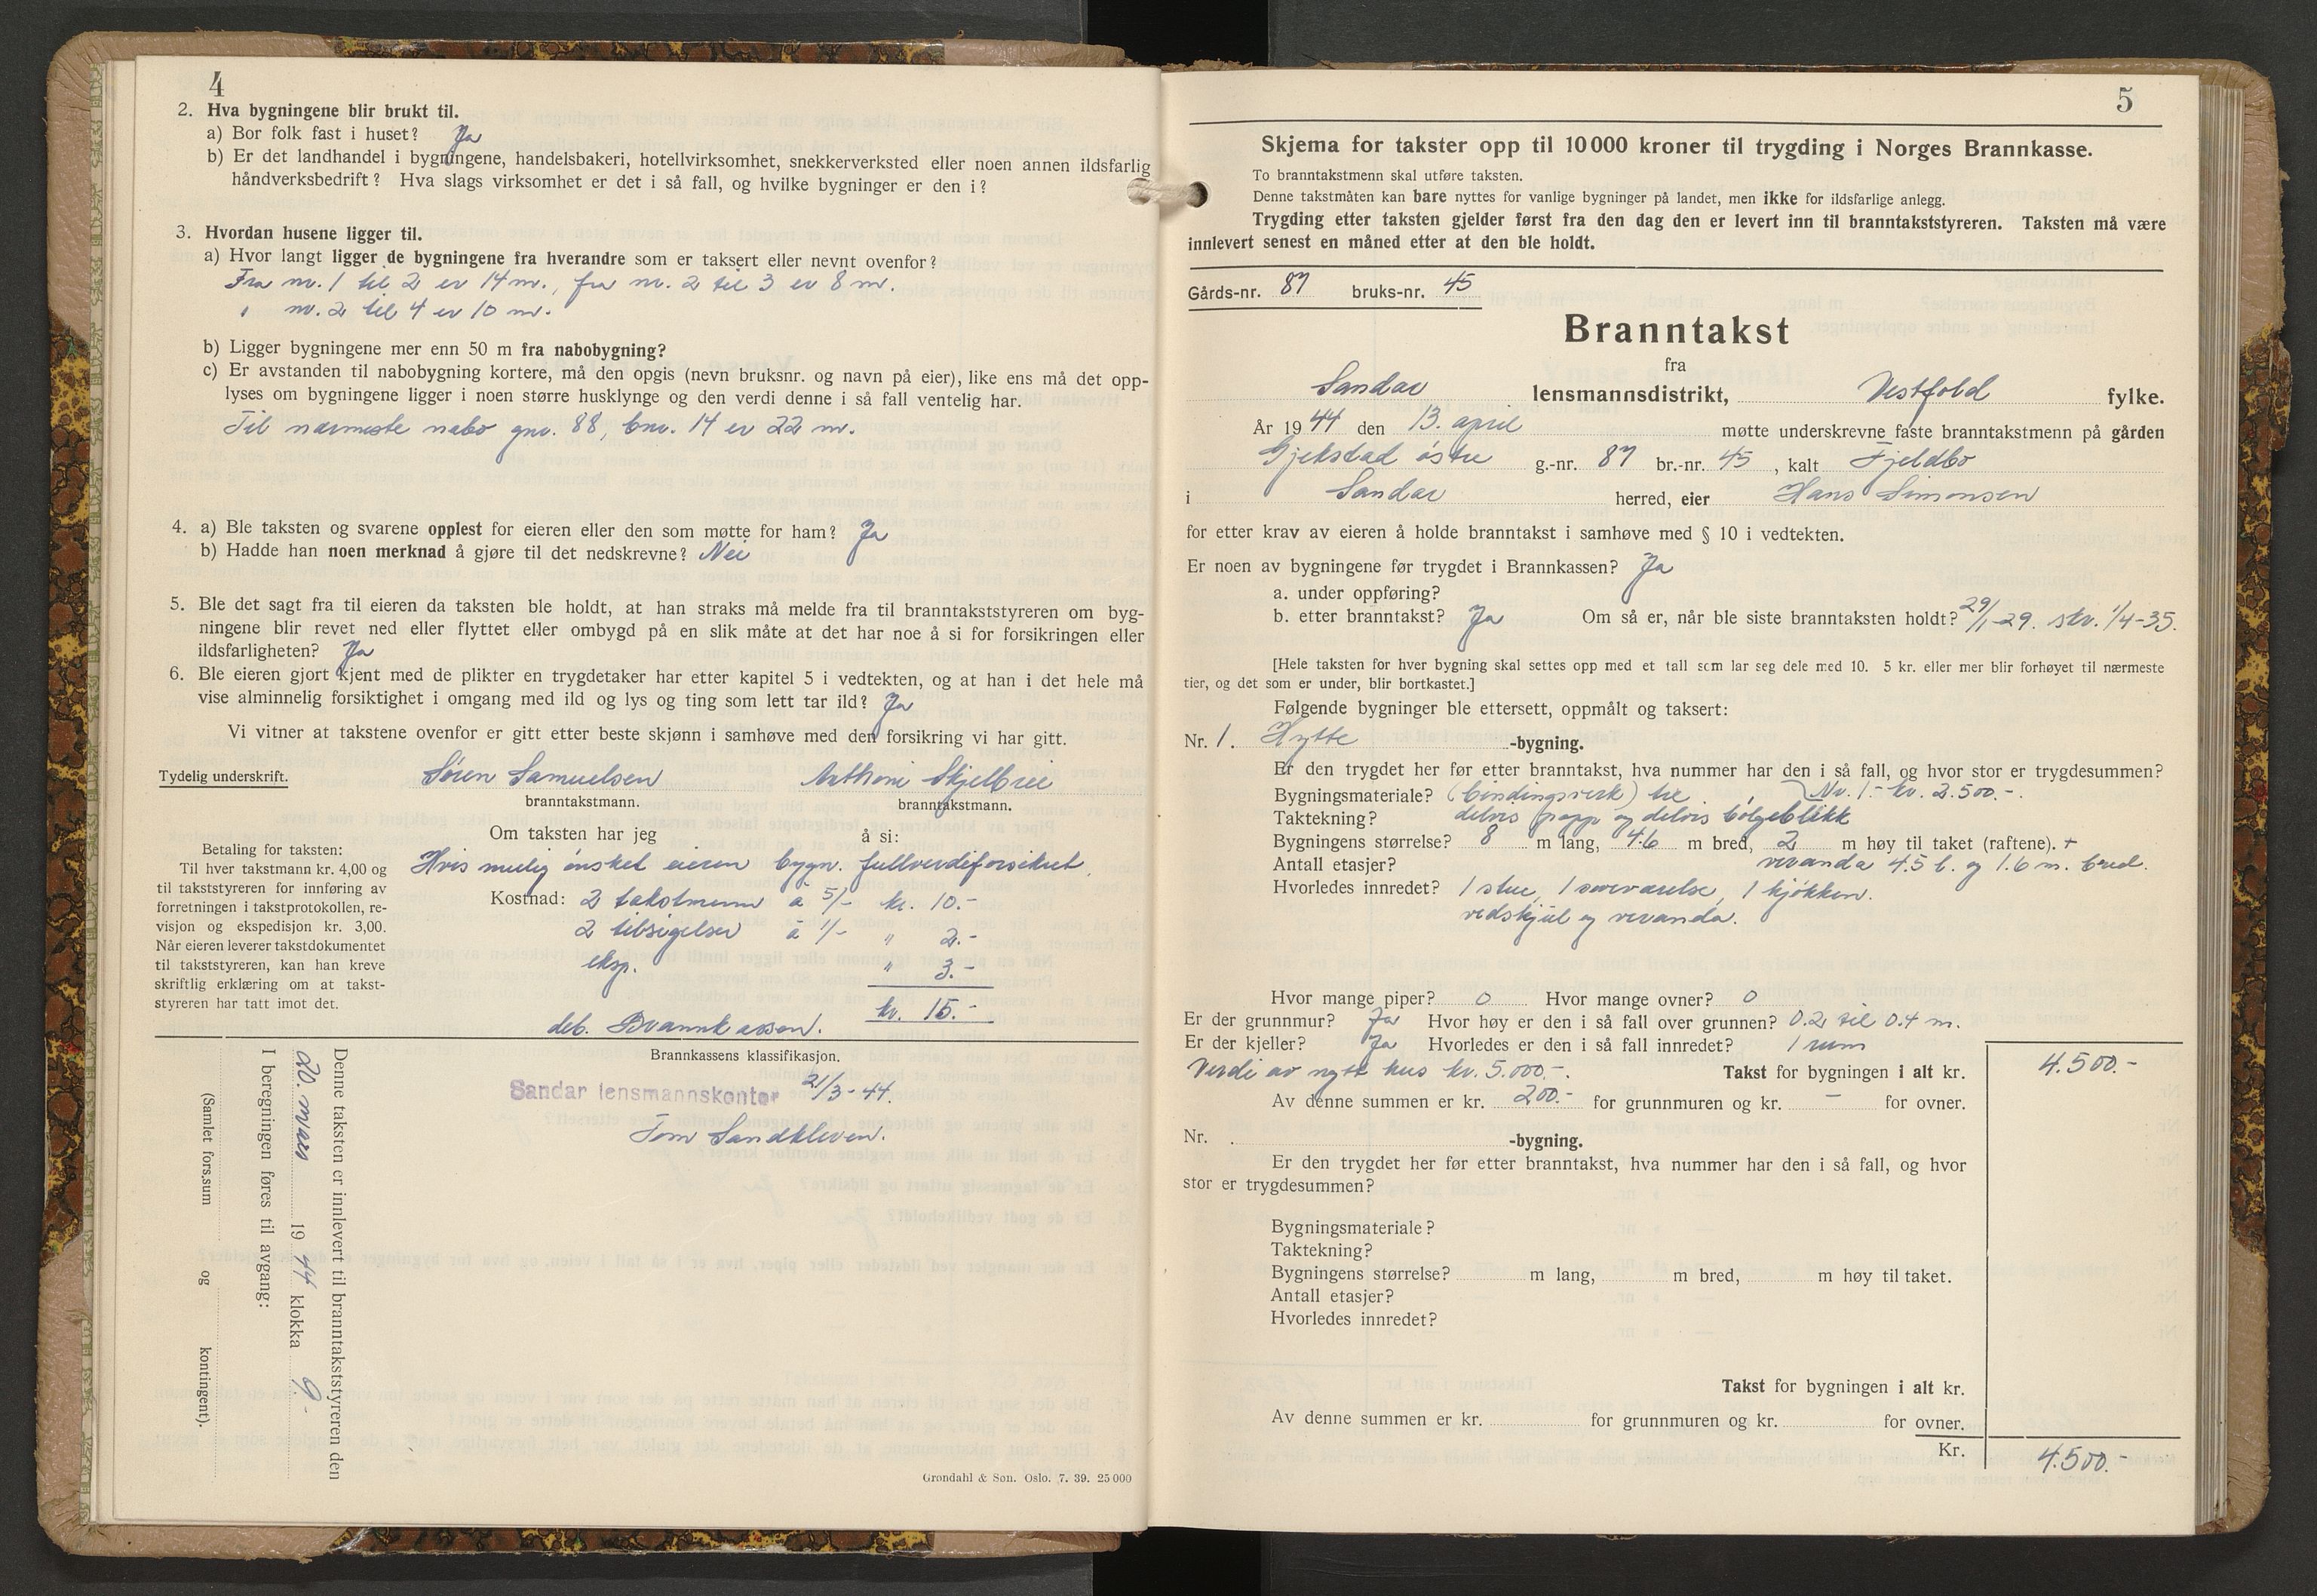 4
2. Hva bygningene blir brukt til.
a) Bor folk fast i huset? Ja
b) Er det landhandel i bygningene, handelsbakeri, hotellvirksomhet, snekkerverksted eller noen annen ildsfarlig
håndverksbedrift? Hva slags virksomhet er det i så fall, og hvilke bygninger er den i?
3. Hvordan husene ligger til.
a) Hvor langt ligger de bygningene fra hverandre som er taksert eller nevnt ovenfor?
Fra nr. 1 til 2 er 14 m., fra nr. 2 til 3 er 8 m.
" nr. 2 til 4 er 10 m.
b) Ligger bygningene mer enn 50 m fra nabobygning?
c) Er avstanden til nabobygning kortere, må den opgis (nevn bruksnr. og navn på eier), like ens må det opp-
lyses om bygningene ligger i noen større husklynge og den verdi denne i så fall ventelig har.
Til nærmeste nabo gnr. 88, bnr. 14 er 22 m.
4. a) Ble taksten og svarene opplest for eieren eller den som møtte for ham? Ja
b) Hadde han noen merknad å gjøre til det nedskrevne? Nei
5. Ble det sagt fra til eieren da taksten ble holdt, at han straks må melde fra til branntakststyreren om byg-
ningene blir revet ned eller flyttet eller ombygd på en slik måte at det har noe å si for forsikringen eller
ildsfarligheten? Ja
6. Ble eieren gjort kjent med de plikter en trygdetaker har etter kapitel 5 i vedtekten, og at han i det hele må
vise alminnelig forsiktighet i omgang med ild og lys og ting som lett tar ild? Ja
Vi vitner at takstene ovenfor er gitt etter beste skjønn i samhøve med den forsikring vi har gitt.
Tydelig underskrift. Søren Samuelsen Anthoni Skjelbrei
branntakstmann. branntakstmann.
Om taksten har jeg å si:
Hvis mulig ønsket eieren bygn. fullverdiforsikret.
Kostnad: 2 takstmenn à 5/- kr. 10.-
2 tilsigelser à 1/- " 2.-
eksp. " 3.-
kr. 15.-
deb. Brannkassen.
Betaling for taksten:
Til hver takstmann kr. 4,00 og
til takststyreren for innføring av
forretningen i takstprotokollen, re-
visjon og ekspedisjon kr. 3,00.
Når eieren leverer takstdokumentet
til takststyreren, kan han kreve
skriftlig erklæring om at takst-
styreren har tatt imot det.
Denne taksten er innlevert til branntakststyreren den
20. mars 1944 klokka 9.-
I beregningen føres til avgang:
(Samlet fors.sum og kontingent).
Brannkassens klassifikasjon.
Sandar lensmannskontor 21/3-44.
Tom Sandkleven.
Grøndahl & Søn. Oslo. 7. 39. 25 000
5
Skjema for takster opp til 10 000 kroner til trygding i Norges Brannkasse.
To branntakstmenn skal utføre taksten.
Denne takstmåten kan bare nyttes for vanlige bygninger på landet, men ikke for ildsfarlige anlegg.
Trygding etter taksten gjelder først fra den dag den er levert inn til branntakststyreren. Taksten må være
innlevert senest en måned etter at den ble holdt.
Gårds-nr. 87 bruks-nr. 45
Branntakst
fra
Sandar lensmannsdistrikt, Vestfold fylke.
År 1944 den 13. april møtte underskrevne faste branntakstmenn på gården
Gjekstad østre g.-nr. 87 br.-nr. 45, kalt Fjeldbo
i Sandar herred, eier Hans Simonsen
for etter krav av eieren å holde branntakst i samhøve med § 10 i vedtekten.
Er noen av bygningene før trygdet i Brannkassen? Ja
a. under oppføring?
b. etter branntakst? Ja Om så er, når ble siste branntaksten holdt? 29/1-29. skr. 1/4-35.
[Hele taksten for hver bygning skal settes opp med et tall som lar seg dele med 10. 5 kr. eller mer blir forhøyet til nærmeste
tier, og det som er under, blir bortkastet.]
Følgende bygninger ble ettersett, oppmålt og taksert:
Nr. 1. Hytte -bygning.
Er den trygdet her før etter branntakst, hva nummer har den i så fall, og hvor stor er trygdesummen?
Bygningsmateriale? (bindingsverk) tre Nr. 1.- kr. 2.500.-.
Taktekning? delvis papp og delvis bølgeblikk
Bygningens størrelse? 8 m lang, 4.6 m bred, 2 m høy til taket (raftene). +
Antall etasjer? veranda 4.5 l. og 1.6 m. bred.
Hvorledes innredet? 1 stue, 1 soveværelse, 1 kjøkken.
vedskjul og veranda.
Hvor mange piper? 0 Hvor mange ovner? 0
Er der grunnmur? Ja Hvor høy er den i så fall over grunnen? 0.2 til 0.4 m.
Er der kjeller? Ja Hvorledes er den i så fall innredet? 1 rum
Verdi av nytt hus kr. 5.000.-. Takst for bygningen i alt kr. 4.500.-
Av denne summen er kr. 200.- for grunnmuren og kr. - for ovner.
Nr. . -bygning.
Er den trygdet her før etter branntakst, hva nummer har den i så fall, og hvor
stor er trygdesummen?
Bygningsmateriale?
Taktekning?
Bygningens størrelse? m lang, m bred, m høy til taket.
Antall etasjer?
Hvorledes innredet?
Takst for bygningen i alt kr.
Av denne summen er kr. for grunnmuren og kr. for ovner.
Kr. 4.500.-